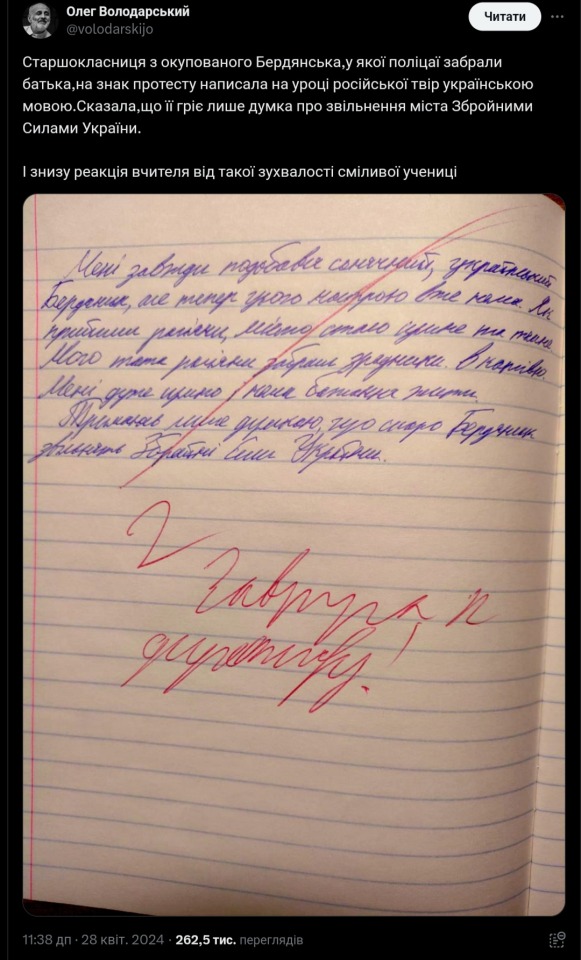 Олег Володарський
@volodarskijo
Читати
Старшокласниця з окупованого Бердянська,у якої поліцаї забрали
батька,на знак протесту написала на уроці російської твір українською
мовою.Сказала,що її гріє лише думка про звільнення міста Збройними
Силами України.
І знизу реакція вчителя від такої зухвалості сміливої учениці
Мені завжди подобався сонячний, український
Бердянськ, але тепер цього настрою вже нема. Як
прийшли росіяни, місто стало сумне та
Мого тата росіяни забрали зрадники. В
Мені дуже сумно і нема бажання жити.
Тримаюсь лише думкою, що скоро Бердянськ
звільнять Збройні Сили України.
2
Завтра к
директору!
11:38 дп · 28 квіт. 2024 · 262,5 тис. переглядів